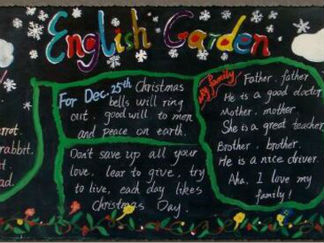 English Garden
rrot.
rabbit.
t.
ad.
For Dec. 25th Christmas
bells will ring
out, good will to men
and peace on earth.
Don't save up all your
love, lear to give, try
to live, each day likes
Christmas Day.
My family
Father, father
He is a good doctor
Mother, mother.
She is a great teacher
Brother, brother.
He is a nice driver.
Aha, I love my
family!